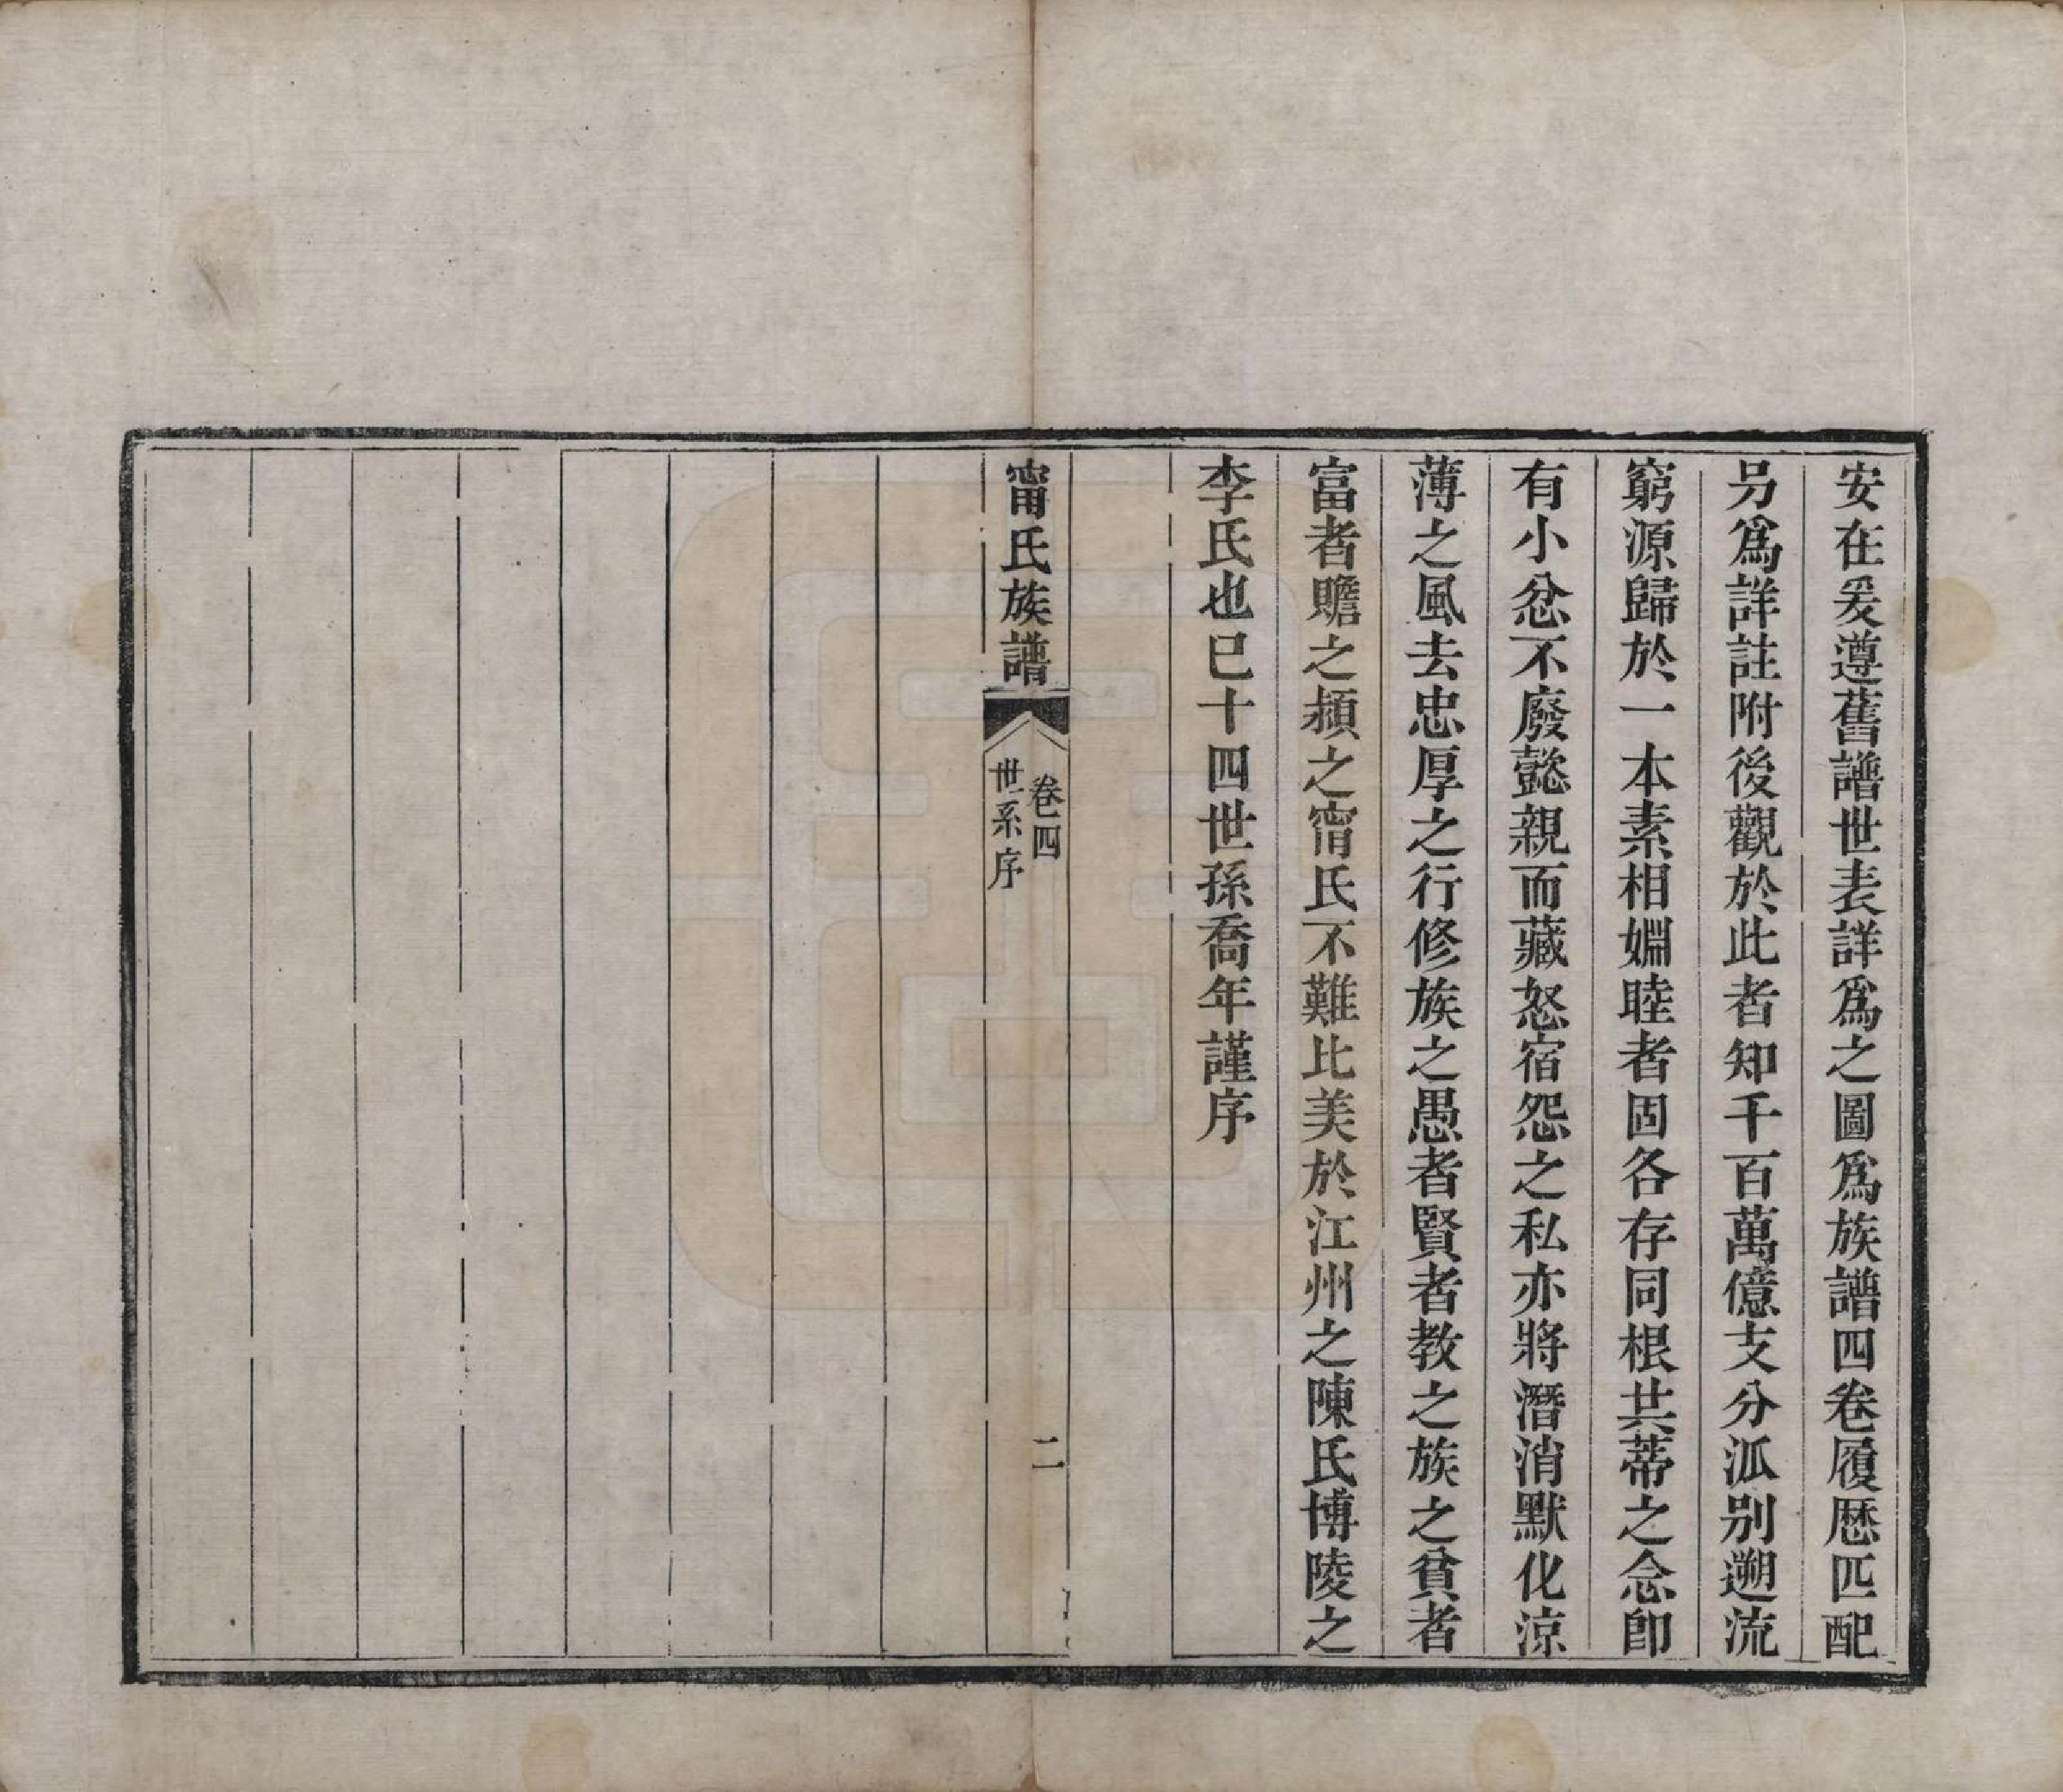 安在爰遵舊譜世表詳爲之圖爲族譜四卷履歷匹配
另爲詳註附後觀於此者知千百萬億支分泒别遡流
窮源歸於一本素相婣睦者固各存同根共蒂之念卽
有小忿不廢懿親而藏怒宿怨之私亦將潛消默化涼
薄之風去忠厚之行修族之愚者賢者教之族之貧者
富者贍之頻之甯氏不難比美於江州之陳氏博陵之
李氏也已十四世孫喬年謹序
甯氏族譜
卷四
世系序
二